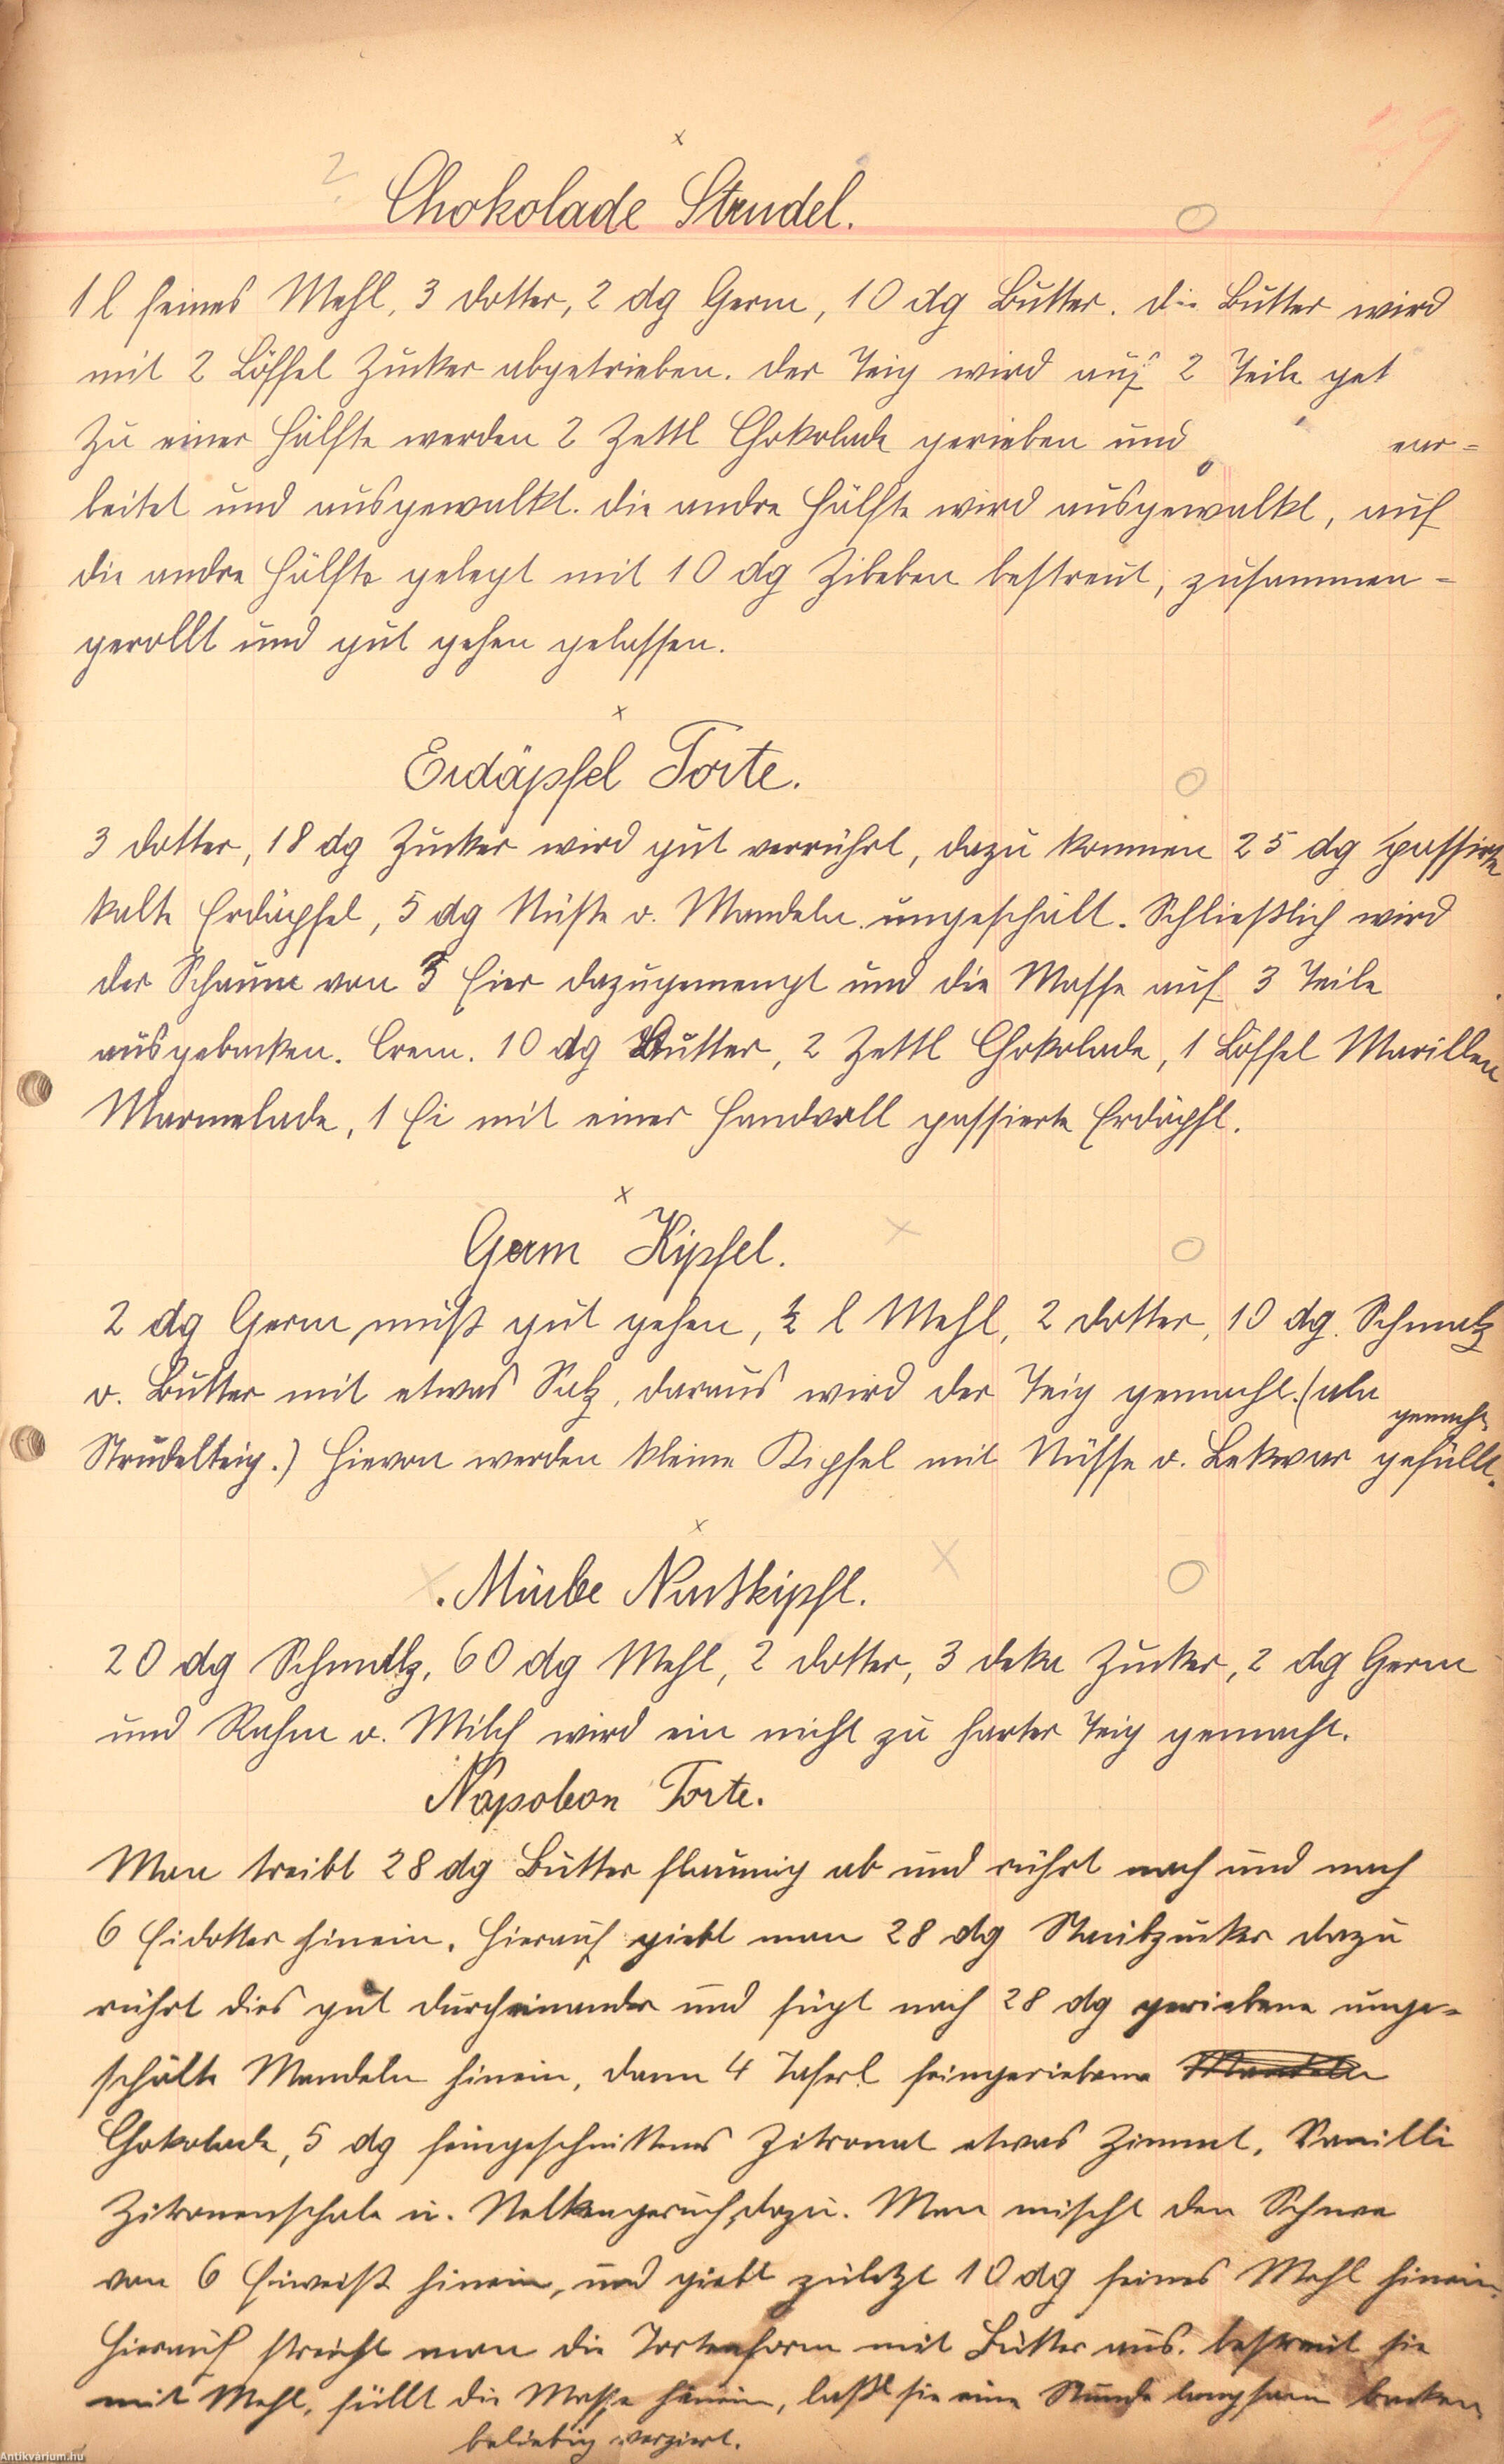 29
Chokolade Strudel.
1 l feines Mehl, 3 Dotter, 2 dg Germ, 10 dg Butter. Die Butter wird
mit 2 Löffel Zucker abgetrieben. Der Teig wird auf 2 Teile get
Zu einer Hälfte werden 2 Zettl Chokolade gerieben und
beitet und ausgewalkt. Die andre Hälfte wird ausgewalkt, auf
die andre Hälfte gelegt mit 10 dg Zibeben bestreut, zusammen-
gerollt und gut gehen gelassen.
Erdäpfel Torte.
3 Dotter, 18 dg Zucker wird gut verrührt, dazu kommen 25 dg passirte
kalte Erdäpfel, 5 dg Nüße o. Mandeln ungeschält. Schließlich wird
der Schaum von Eier dazugemengt und die Masse auf 3 Teile
ausgebacken. Crem. 10 dg Butter, 2 Zettl Chokolade, 1 Löffel Marillen
Marmelade, 1 Ei mit einer Handvoll passierte Erdäpfl.
Germ Kipfel.
2 dg Germ muß gut gehen, ½ l Mehl, 2 Dotter, 10 dg. Schmalz
o. Butter mit etwas Salz, daraus wird der Teig gemacht. (ala
Strudelteig.) Hievon werden kleine Kipfel mit Nüsse o. Lekwar gefüllt.
gemacht
Mürbe Nußkipfl.
20 dg Schmalz, 60 dg Mehl, 2 Dotter, 3 deka Zucker, 2 dg Germ
und Rahm o. Milch wird ein nicht zu harter Teig gemacht.
Napoleon Torte.
Man treibt 28 dg Butter flaumig ab und rührt nach und nach
6 Eidotter hinein. Hierauf giebt man 28 dg Staubzucker dazu
rührt dies gut durcheinander und fügt noch 28 dg geriebene unge-
schälte Mandeln hinein, dann 4 Taferl feingeriebene
Chokolade, 5 dg feingeschnittenes Zitronat etwas Zimmt, Vanilli
Zitronenschale u. Nelkengeruch dazu. Man mischt den Schnee
von 6 Eiweiß hinein, und giebt zuletzt 10 dg feines Mehl hinein.
Hierauf streicht man die Tortenform mit Butter aus. bestreut sie
mit Mehl, füllt die Masse hinein, laßt sie eine Stunde langsam backen
beliebig verziert.
Antikvárium.hu